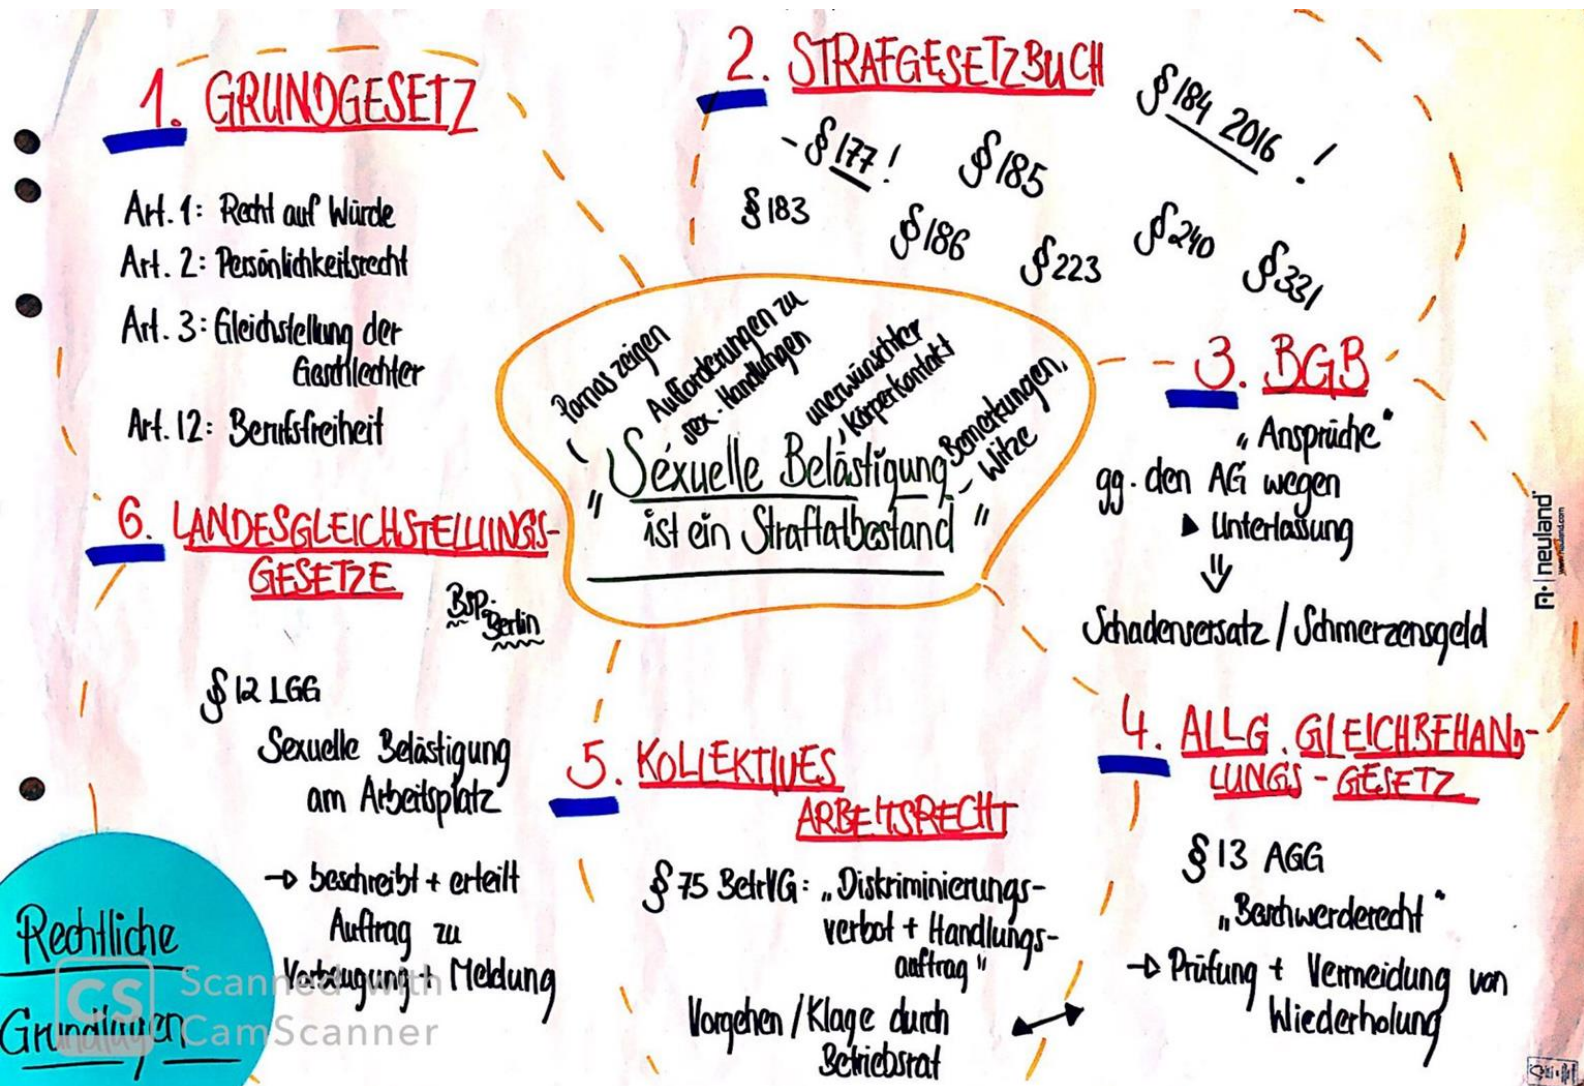 1. GRUNDGESETZ
Art. 1: Recht auf Würde
Art. 2: Persönlichkeitsrecht
Art. 3: Gleichstellung der
Geschlechter
Art. 12: Berufsfreiheit
2. STRAFGESETZBUCH
- § 177 !
§ 185
§ 184 2016 !
§ 183
§ 186
§ 223
§ 240
§ 331
Pornos zeigen
Aufforderungen zu
sex. Handlungen
unerwünschter
Körperkontakt
Bemerkungen,
Witze
"Sexuelle Belästigung
ist ein Straftatbestand"
3. BGB
"Ansprüche"
gg. den AG wegen
▶ Unterlassung
⇓
Schadensersatz / Schmerzensgeld
4. ALLG. GLEICHBEHAND-
LUNGS-GESETZ
§ 13 AGG
"Beschwerderecht"
→ Prüfung + Vermeidung von
Wiederholung
5. KOLLEKTIVES
ARBEITSRECHT
§ 75 BetrVG: "Diskriminierungs-
verbot + Handlungs-
auftrag"
Vorgehen / Klage durch
Betriebsrat
6. LANDESGLEICHSTELLUNGS-
GESETZE
Bsp. Berlin
§ 12 LGG
Sexuelle Belästigung
am Arbeitsplatz
→ beschreibt + erteilt
Auftrag zu
Vorbeugung + Meldung
Rechtliche
Grundlagen
CS Scanned with
CamScanner
neuland
www.neuland.com